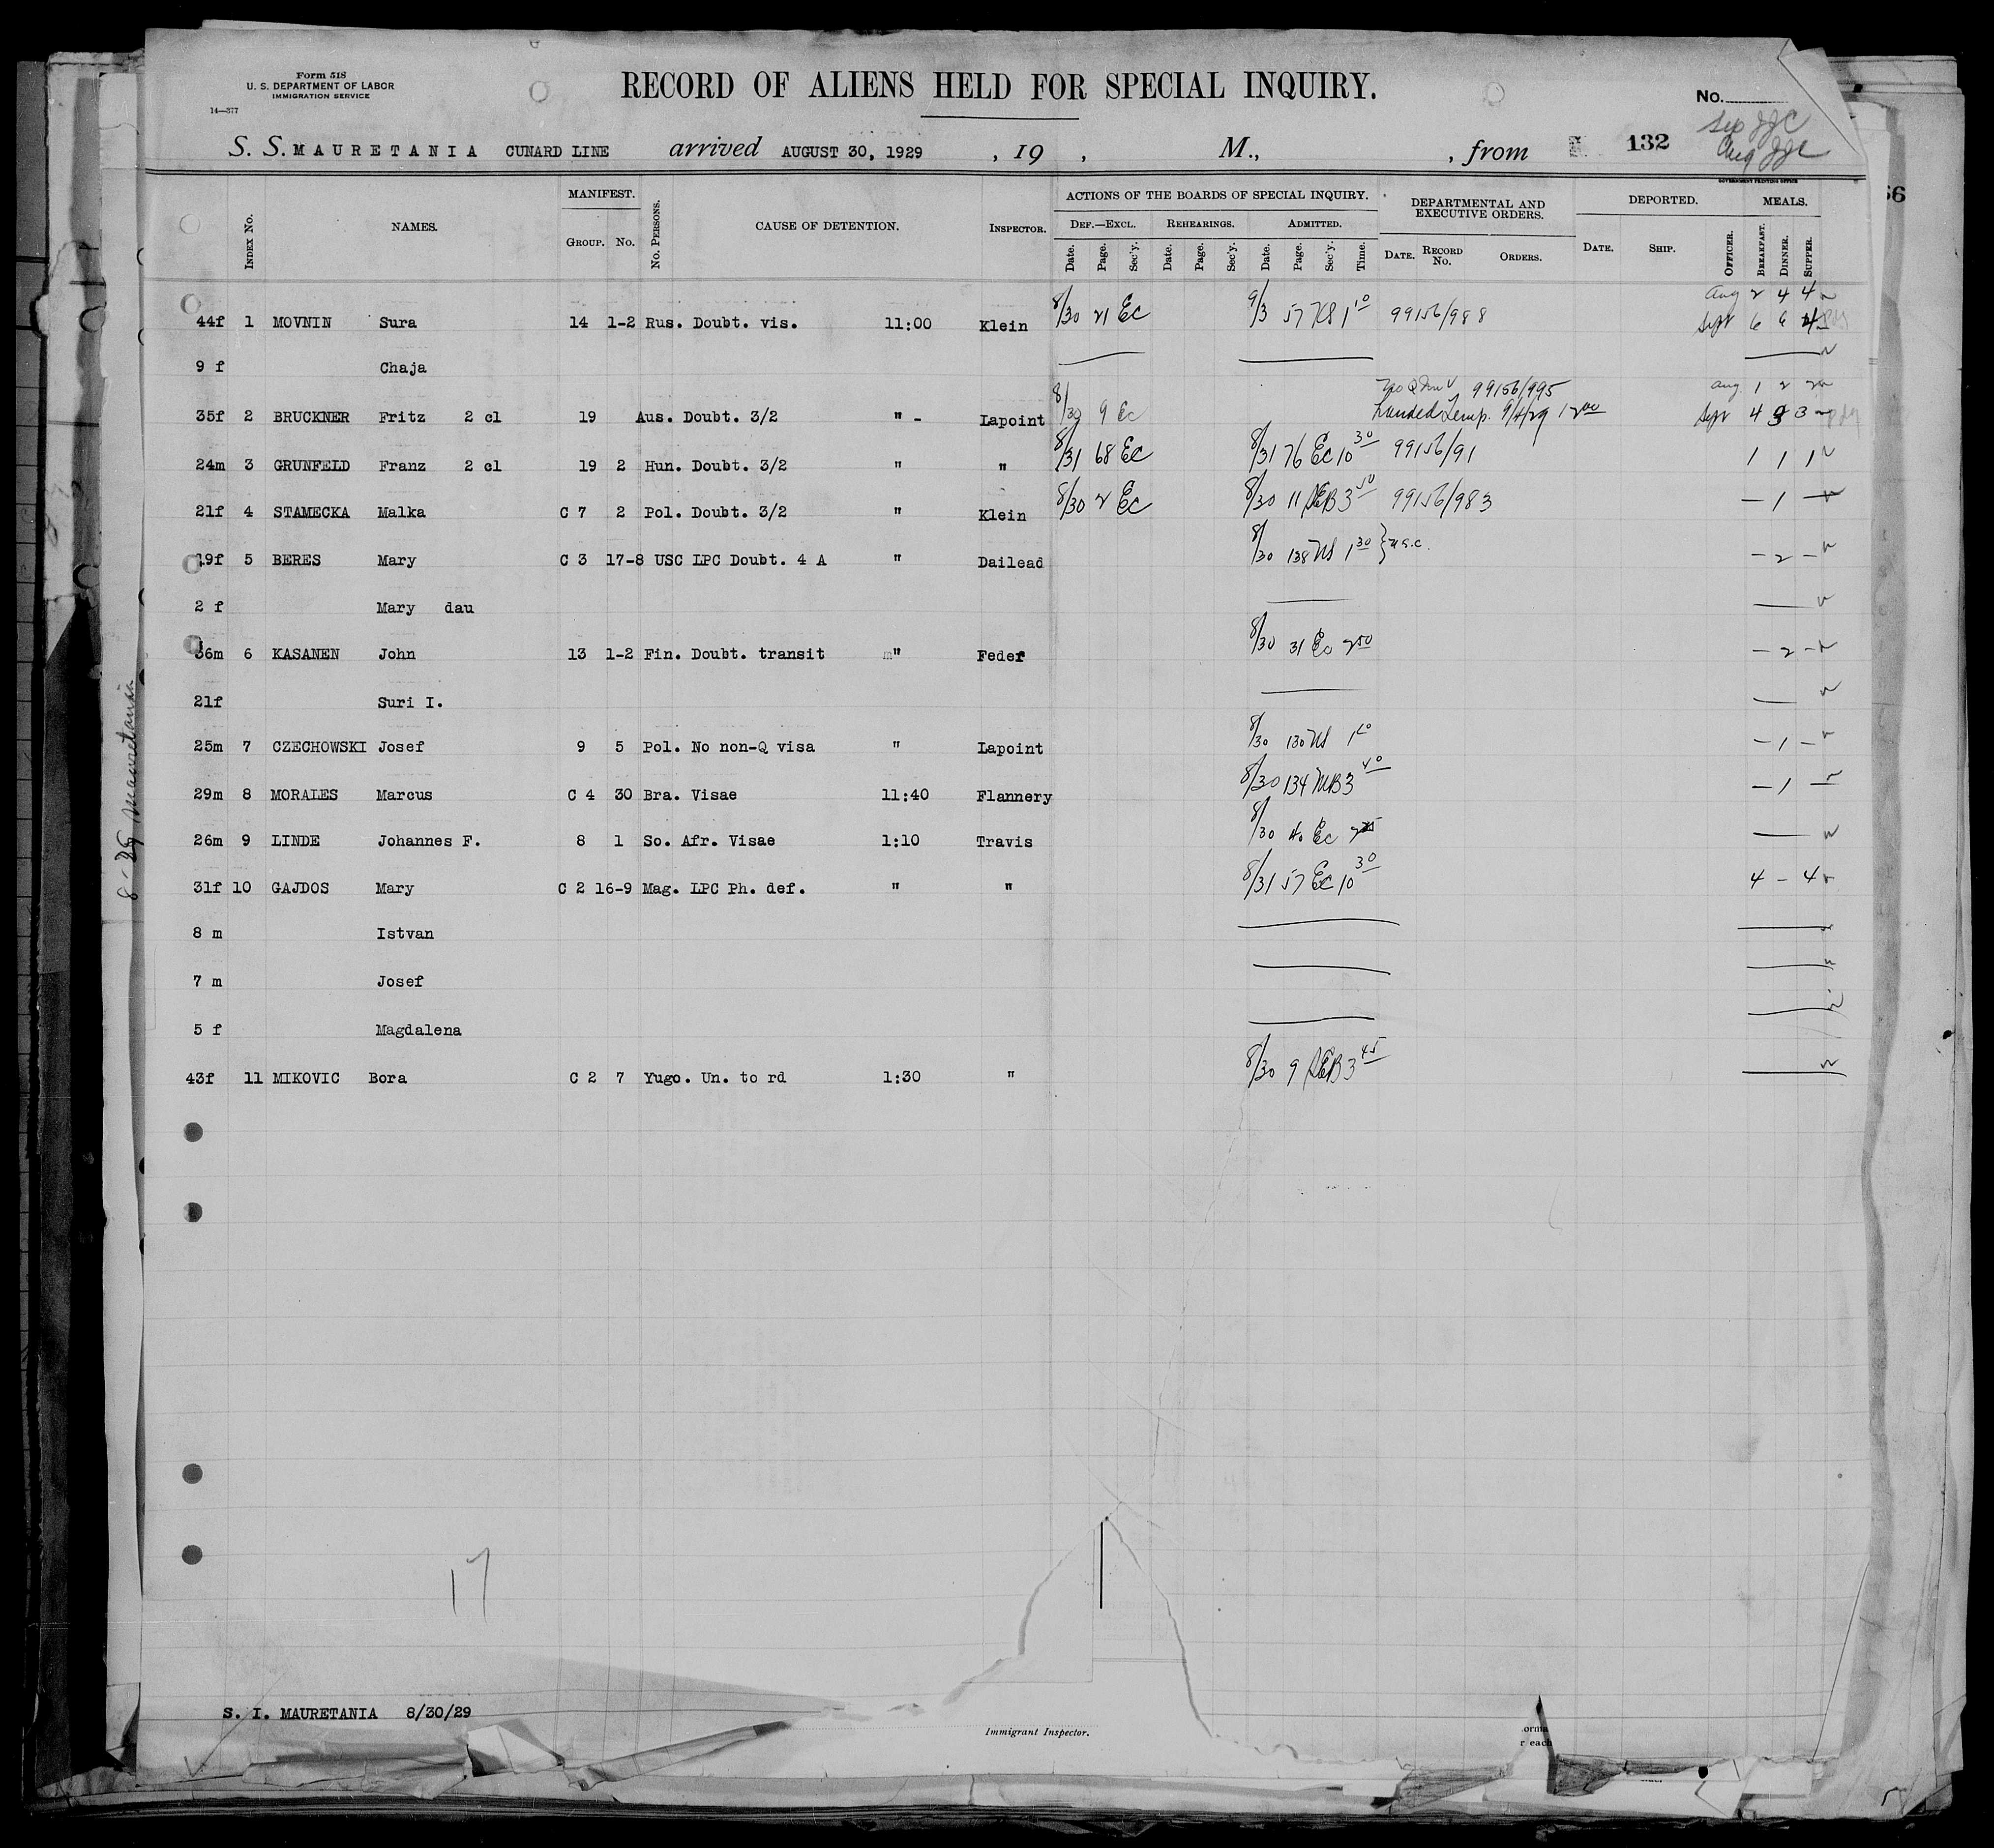 Form 518
U. S. DEPARTMENT OF LABOR
IMMIGRATION SERVICE
14—377
RECORD OF ALIENS HELD FOR SPECIAL INQUIRY.
No.
Sep JJC
Aug JJC
S. S. MAURETANIA CUNARD LINE arrived AUGUST 30, 1929 , 19 , M., , from 132
GOVERNMENT PRINTING OFFICE
66
INDEX No. NAMES. MANIFEST. GROUP. No. No. PERSONS. CAUSE OF DETENTION. INSPECTOR. ACTIONS OF THE BOARDS OF SPECIAL INQUIRY. DEPARTMENTAL AND EXECUTIVE ORDERS. DEPORTED. MEALS.
DEF.—EXCL. REHEARINGS. ADMITTED.
Date. Page. Sec'y. Date. Page. Sec'y. Date. Page. Sec'y. Time. DATE. RECORD No. ORDERS. DATE. SHIP. OFFICER. BREAKFAST. DINNER. SUPPER.
Aug 2 4 4
44f 1 MOVNIN Sura 14 1-2 Rus. Doubt. vis. 11:00 Klein 8/30 21 EC 9/3 57 1 10 99156/988 Sept 6 6 4
9 f Chaja
99156/995 aug. 1 2 2
35f 2 BRUCKNER Fritz 2 cl 19 Aus. Doubt. 3/2 " - Lapoint 8/30 9 EC Landed Temp. 9/4/29 12 00 Sept 4 3 3
24m 3 GRUNFELD Franz 2 cl 19 2 Hun. Doubt. 3/2 " " 8/31 68 EC 8/31 76 EC 10 30 99156/91 1 1 1
21f 4 STAMECKA Malka C 7 2 Pol. Doubt. 3/2 " Klein 8/30 2 EC 8/30 11 DEB 3 50 99156/983 — 1 —
19f 5 BERES Mary C 3 17-8 USC LPC Doubt. 4 A " Dailead 8/30 138 NS 1 30 } U.S.C. — 2 —
2 f Mary dau
36m 6 KASANEN John 13 1-2 Fin. Doubt. transit " Feder 8/30 31 EC 2 50 — 2 —
21f Suri I.
25m 7 CZECHOWSKI Josef 9 5 Pol. No non-Q visa " Lapoint 8/30 130 NS — 1 —
29m 8 MORALES Marcus C 4 30 Bra. Visae 11:40 Flannery 8/30 134 MB 3 40 — 1 —
26m 9 LINDE Johannes F. 8 1 So. Afr. Visae 1:10 Travis 8/30 40 EC
31f 10 GAJDOS Mary C 2 16-9 Mag. LPC Ph. def. " " 8/31 57 EC 10 30 4 — 4
8 m Istvan
7 m Josef
5 f Magdalena
43f 11 MIKOVIC Bora C 2 7 Yugo. Un. to rd 1:30 " 8/30 9 DEB 3 45
8-29 Mauretania
17
S. I. MAURETANIA 8/30/29
Immigrant Inspector.
orma
r each